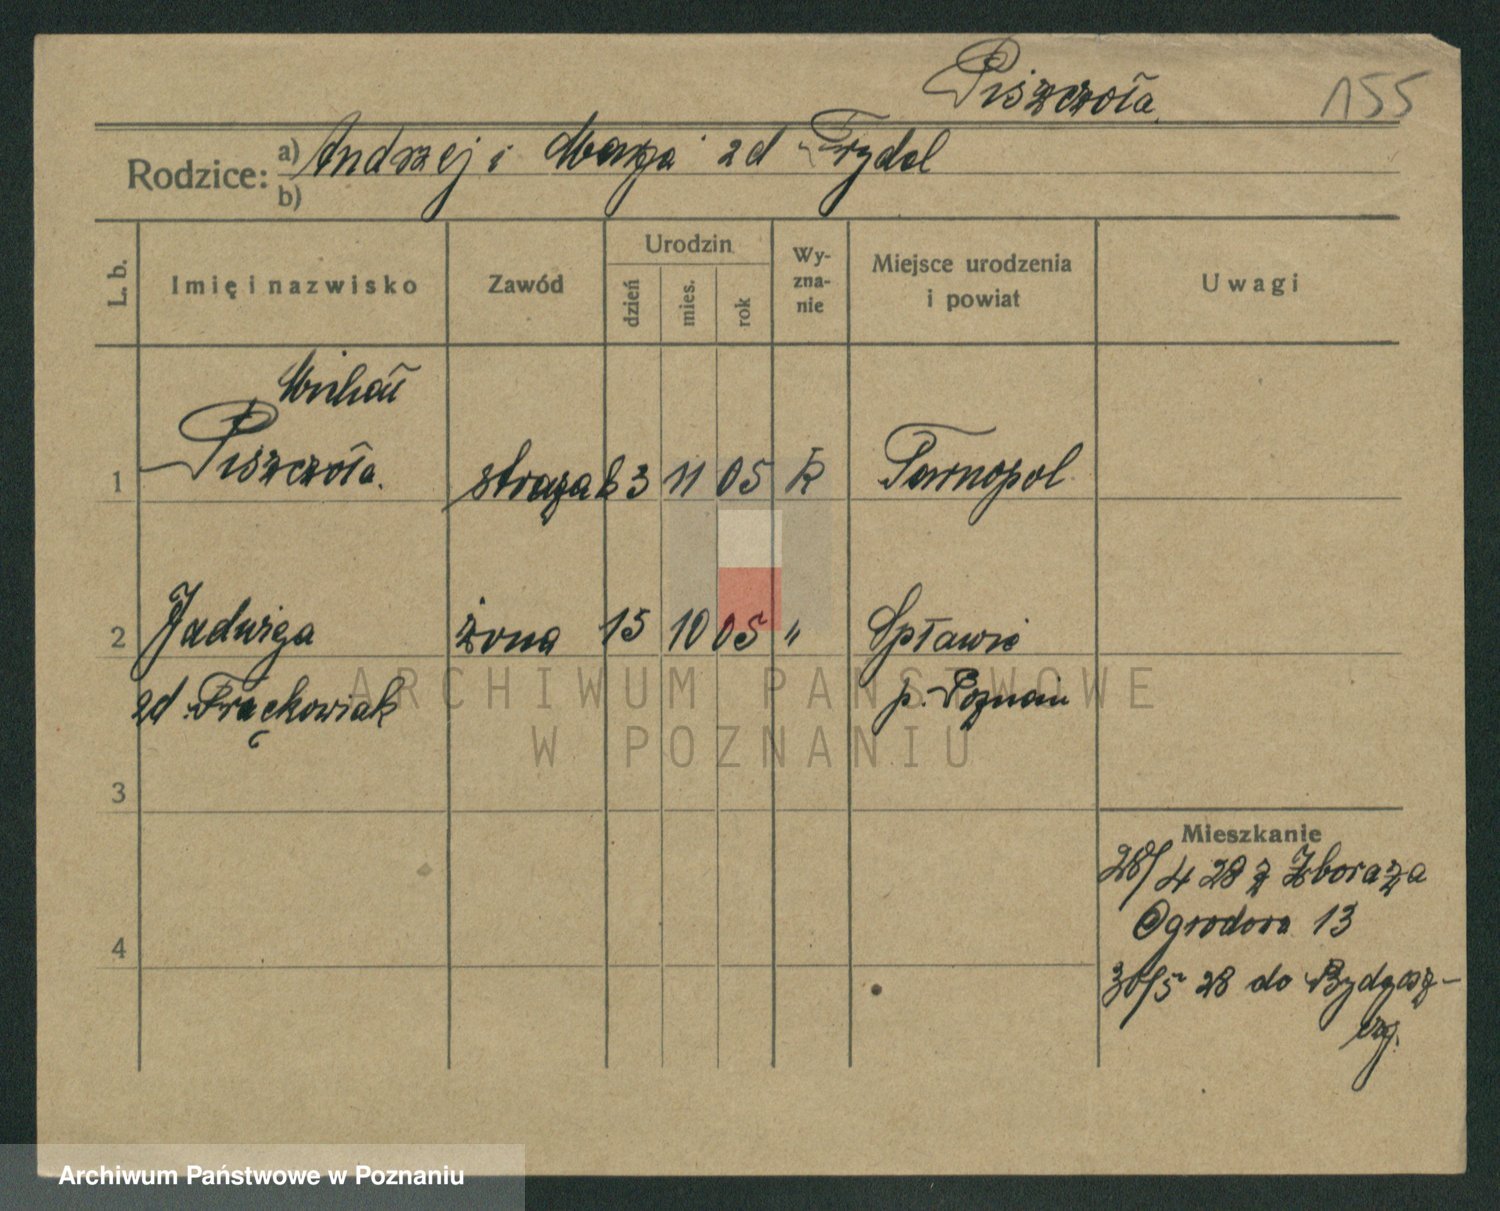 Piszczoła 155
Rodzice: a) Andrzej i Marya zd Frydel
b)
L. b. Imię i nazwisko Zawód Urodzin dzień mies. rok Wy-zna-nie Miejsce urodzenia i powiat Uwagi
Michał
1 Piszczoła. strażak 3 11 05 k Tarnopol
2 Jadwiga żona 15 10 05 " Spławie
zd. Frąckowiak p. Poznań
ARCHIWUM PAŃSTWOWE
W POZNANIU
3
Mieszkanie
28/4 28 z Zboraża
4 Ogrodowa 13
30/5 28 do Bydgosz-
czy.
Archiwum Państwowe w Poznaniu